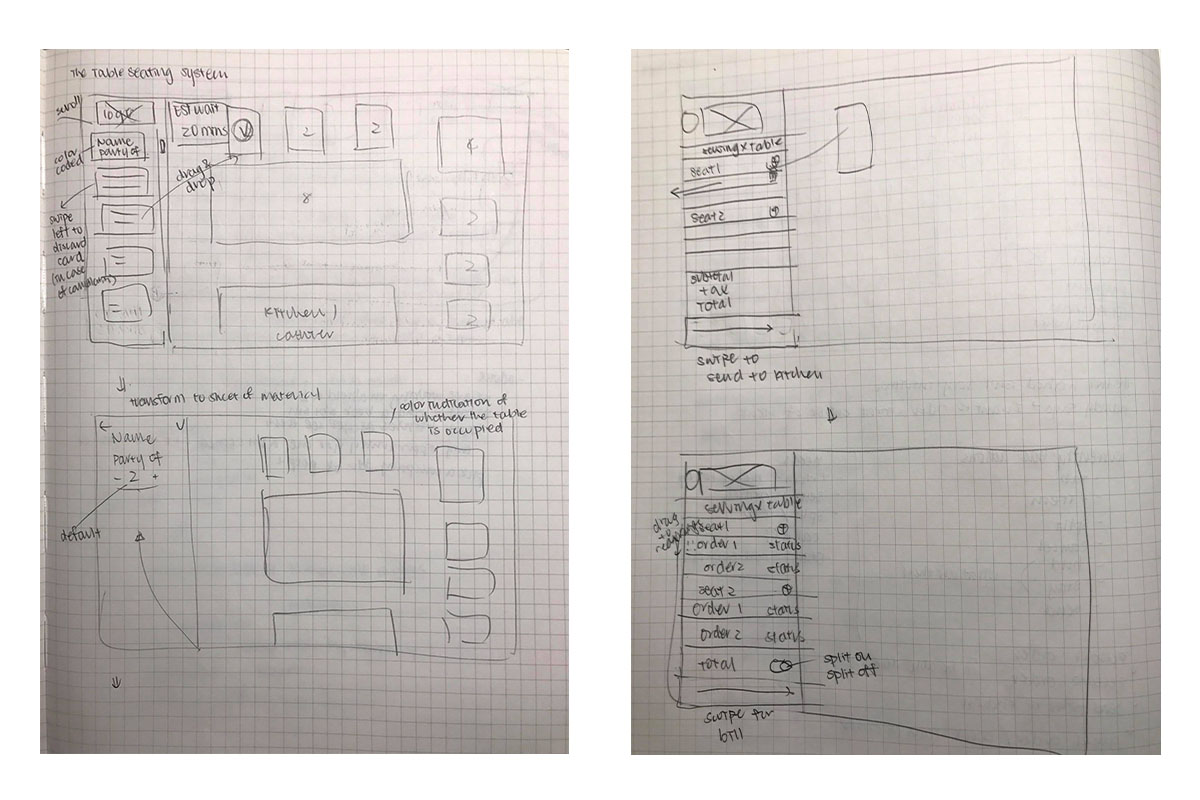 The Table seating system
scroll
logo
EST wait
20 mins
color
coded
Name
party of
2
2
4
drag &
drop
8
swipe
left to
discard
card
(in case
2
2
2
Kitchen /
transform to sheet of material
color indication of
whether the table
is occupied
Name
party of
- 2 +
default
seat 1
seat 2
subtotal
tax
total
swipe to
send to kitchen
table
drag
to
seat 1
order 1 status
order 2 status
seat 2
order 1 status
order 2 status
total
split on
split off
swipe for
bill